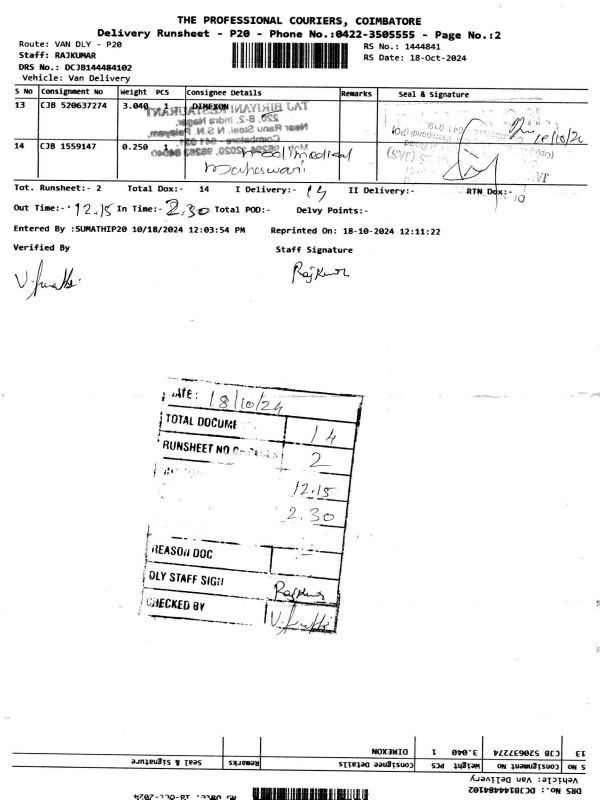 THE PROFESSIONAL COURIERS, COIMBATORE
Delivery Runsheet - P20 - Phone No.:0422-3505555 - Page No.:2
Route: VAN DLY - P20
RS No.: 1444841
Staff: RAJKUMAR
RS Date: 18-Oct-2024
DRS No.: DCJB144484102
Vehicle: Van Delivery
S NO Consignment No Weight PCS Consignee Details Remarks Seal & Signature
13 CJB 520637274 3.040 1 DIMEXON
TAJ BIRIYANI RESTAURANT
220, B-2, Indra Nagar,
Near Ranu Steel, N.S.N. Palayam,
Coimbatore - 641 031.
14 CJB 1559147 0.250 1 medical
Maheswari
Tot. Runsheet:- 2 Total Dox:- 14 I Delivery:- 14 II Delivery:- RTN Dox:-
Out Time:- 12.15 In Time:- 2.30 Total POD:- Delvy Points:-
Entered By :SUMATHIP20 10/18/2024 12:03:54 PM Reprinted On: 18-10-2024 12:11:22
Verified By Staff Signature
Rajkumar
DATE: 18/10/24
TOTAL DOCUME 14
RUNSHEET NO DETAILS 2
12.15
2.30
REASON DOC
DLY STAFF SIGN Rajkumar
CHECKED BY
13 CJB 520637274 3.040 1 DIMEXON
S NO Consignment No Weight PCS Consignee Details Remarks Seal & Signature
Vehicle: Van Delivery
DRS No.: DCJB144484102